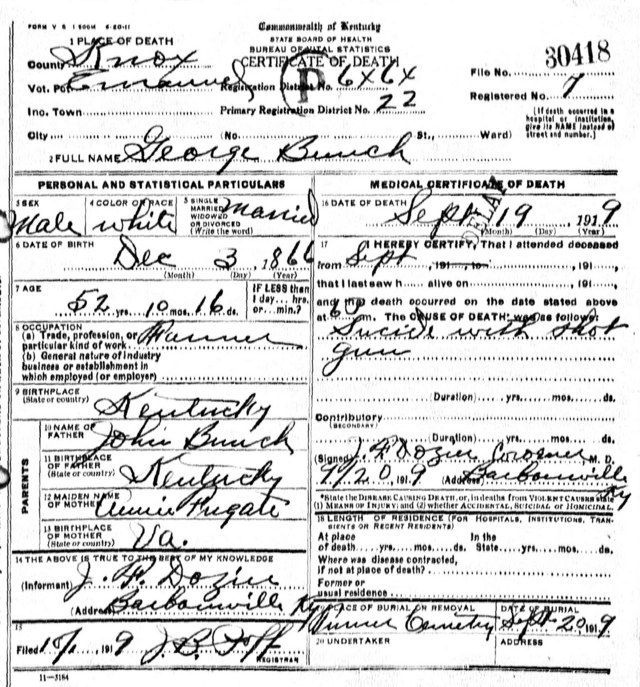 FORM V S 1 500M 6-20-11
Commonwealth of Kentucky
STATE BOARD OF HEALTH
BUREAU OF VITAL STATISTICS
CERTIFICATE OF DEATH
1 PLACE OF DEATH
County Knox
Vot. Pct. Emanuel
Registration District No. 6x6x
File No. 30418
Ino. Town
Primary Registration District No. 22
Registered No. 7
City (No. St., Ward)
[If death occurred in a hospital or institution, give its NAME instead of street and number.]
P
2 FULL NAME George Bunch
PERSONAL AND STATISTICAL PARTICULARS
3 SEX Male
4 COLOR OR RACE white
5 SINGLE MARRIED WIDOWED OR DIVORCED (Write the word) Married
6 DATE OF BIRTH
Dec 3, 1866
(Month) (Day) (Year)
7 AGE
52 yrs. 10 mos. 16 ds.
IF LESS than 1 day... hrs. or... min.?
8 OCCUPATION
(a) Trade, profession, or particular kind of work
(b) General nature of industry
business or establishment in
which employed (or employer)
9 BIRTHPLACE
(State or country) Kentucky
PARENTS
10 NAME OF FATHER John Bunch
11 BIRTHPLACE OF FATHER (State or country) Kentucky
12 MAIDEN NAME OF MOTHER
13 BIRTHPLACE OF MOTHER (State or country) Va.
14 THE ABOVE IS TRUE TO THE BEST OF MY KNOWLEDGE
(Informant) J. F. Dozier
(Address) Barbourville Ky
15
Filed 1919
REGISTRAR
11—3184
MEDICAL CERTIFICATE OF DEATH
16 DATE OF DEATH
DELAY
Sept 19 1919
(Month) (Day) (Year)
17 I HEREBY CERTIFY, That I attended deceased
from Sept, 191 to 191
that I last saw h alive on 191
and that death occurred on the date stated above
at 6 m. The CAUSE OF DEATH was as follows:
Suicide with shot
gun
(Duration) yrs. mos. ds.
Contributory
(SECONDARY)
(Duration) yrs. mos. ds.
(Signed) J. F. Dozier Coroner M. D.
9/20 1919 (Address) Barbourville Ky
*State the DISEASE CAUSING DEATH, or, in deaths from VIOLENT CAUSES state (1) MEANS OF INJURY; and (2) whether ACCIDENTAL, SUICIDAL or HOMICIDAL.
18 LENGTH OF RESIDENCE (FOR HOSPITALS, INSTITUTIONS, TRANSIENTS OR RECENT RESIDENTS)
At place of death yrs. mos. ds. In the State yrs. mos. ds.
Where was disease contracted,
if not at place of death?
Former or
usual residence
19 PLACE OF BURIAL OR REMOVAL
Cemetery
DATE OF BURIAL
Sept 20 1919
20 UNDERTAKER
ADDRESS